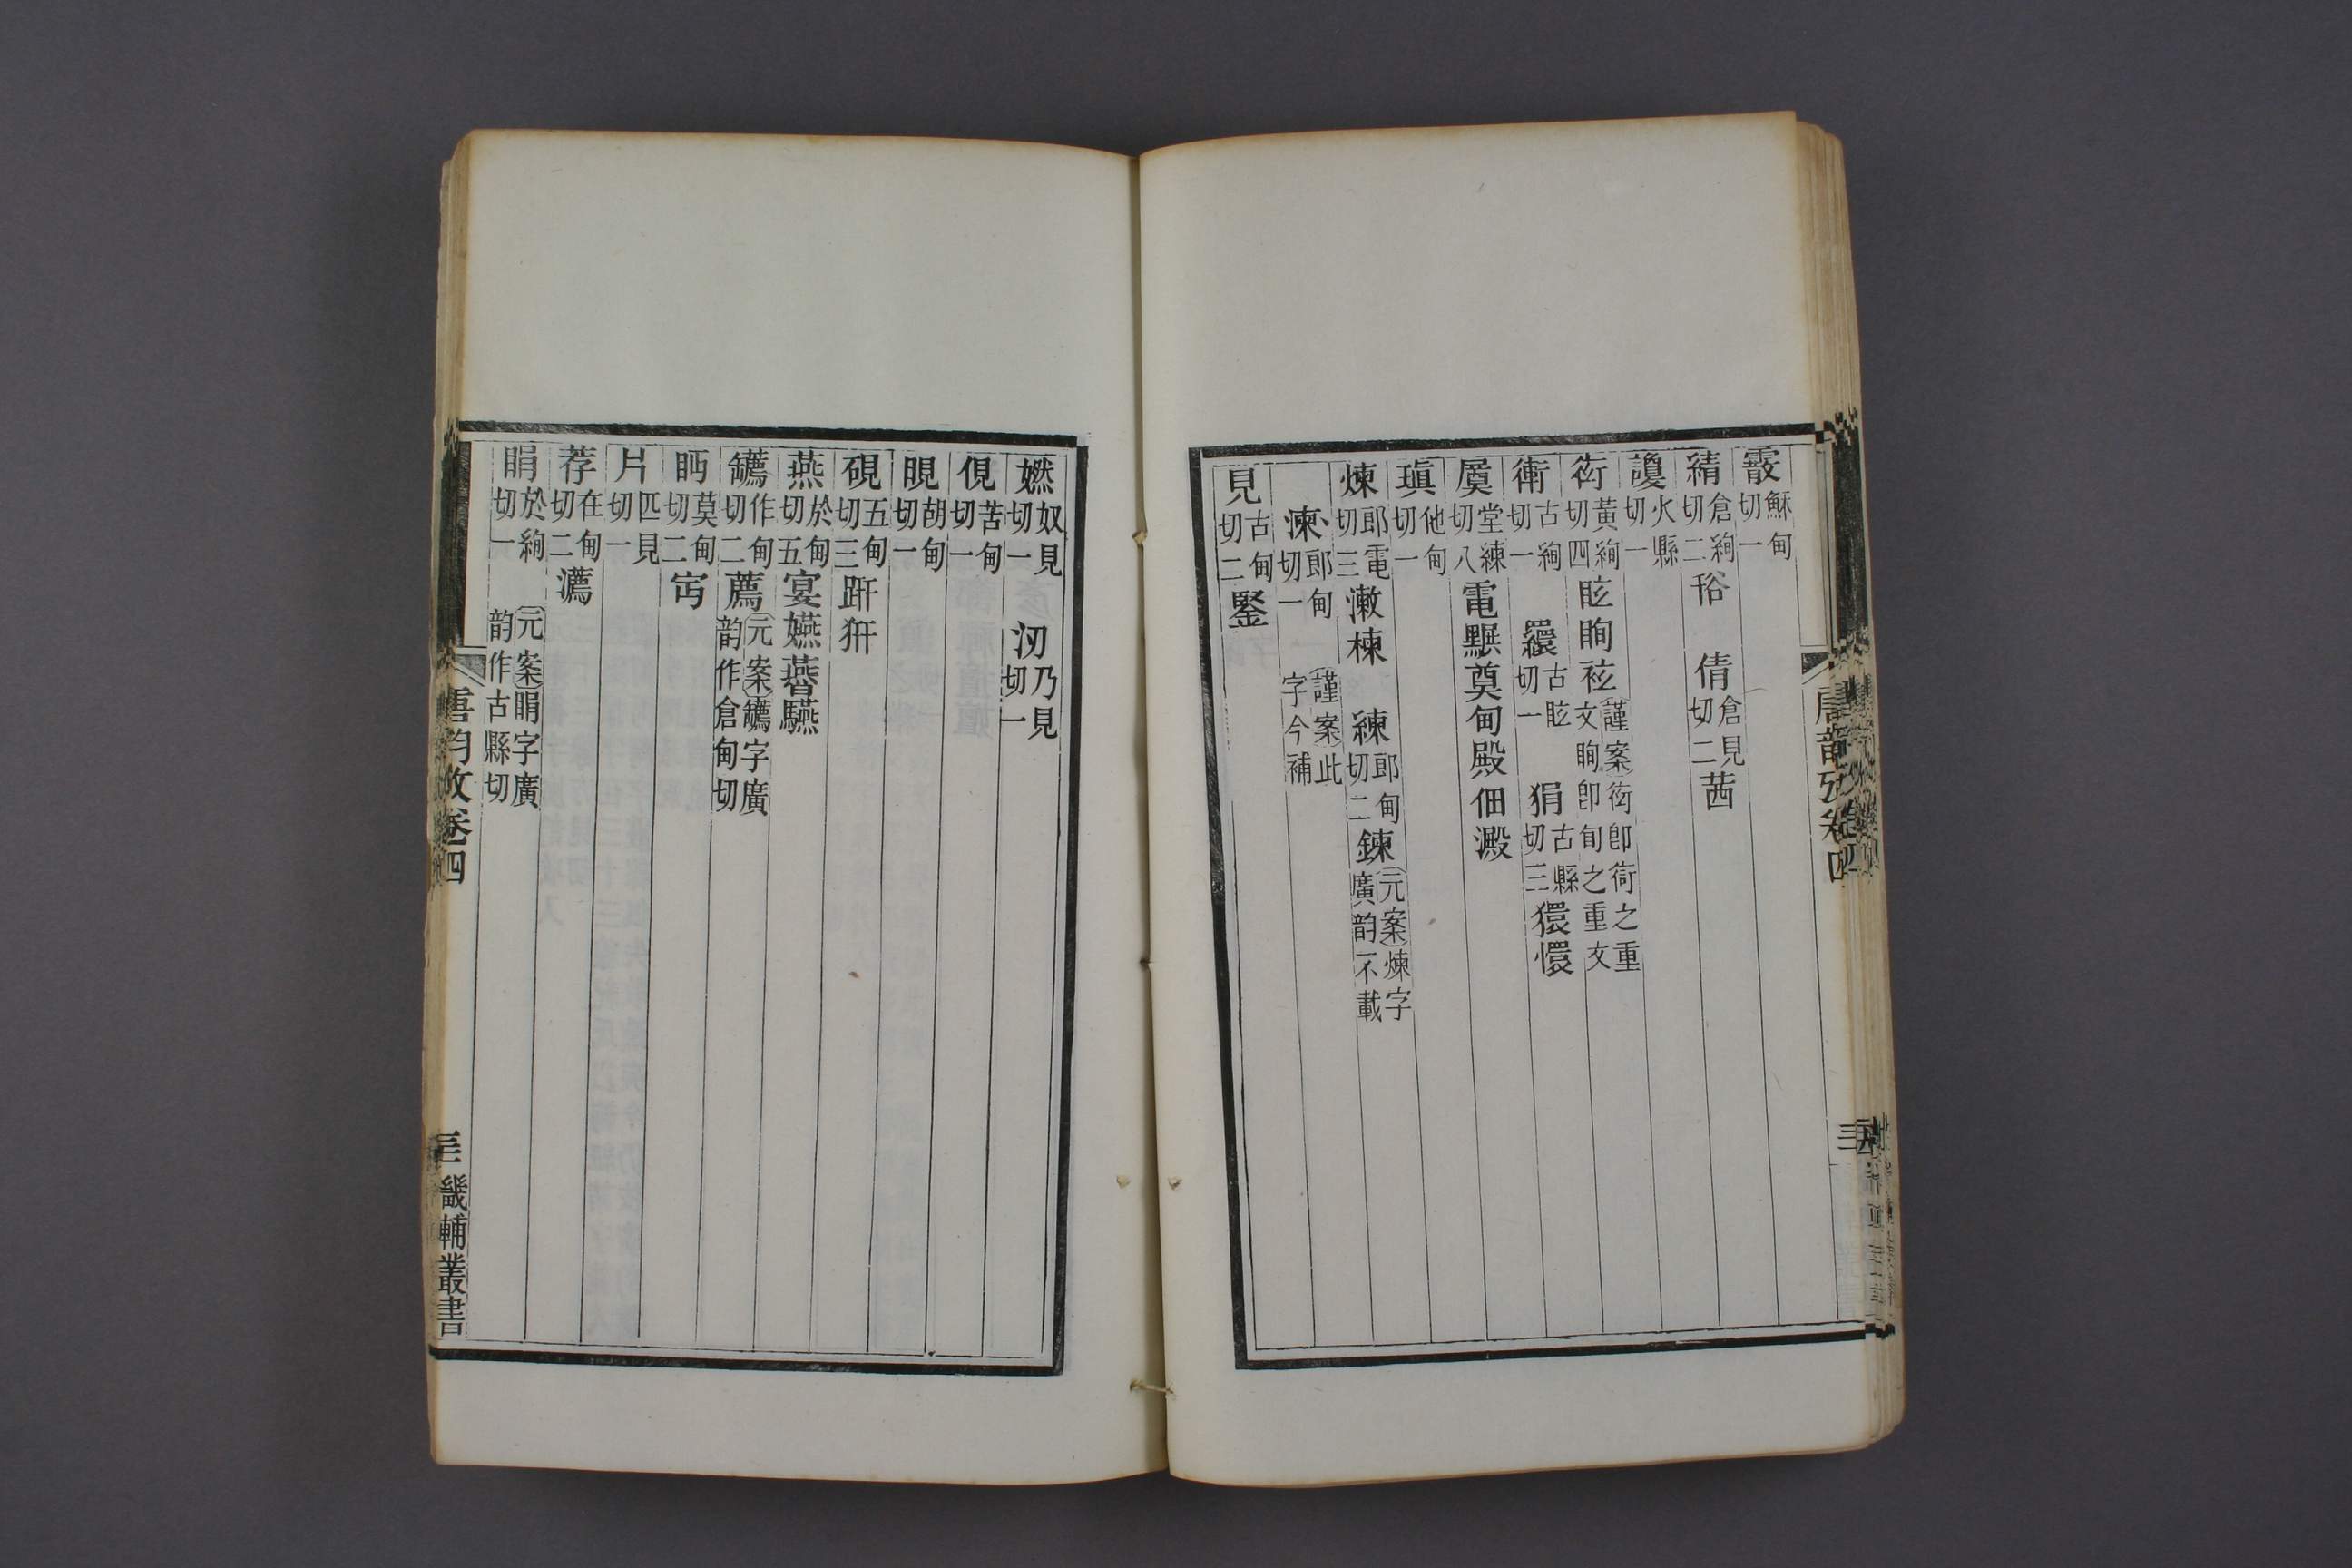 霰穌甸切一
綪倉絢切二𧮫倩倉見切二茜
讂火縣切一
衒黃絢切四眩眴袨謹案衒卽衙之重文眴卽旬之重文
古絢切一繯古眩切一狷古縣切三獧懁
屟堂練切八電黰奠甸殿佃澱
瑱他甸切一
煉郎電切三㶑楝練郎甸切二鍊元案煉字廣韵不載
郎甸切一謹案此字今補
見古甸切二鋻
唐韵攷卷四
嬿奴見切一涊乃見切一
俔苦甸切一
晛胡甸切一
硯五甸切三趼豜
燕於甸切五宴嬿㬫驠
韉作甸切二薦元案韉字廣韵作倉甸切
眄莫甸切二㝉
片匹見切一
荐在甸切二瀳
睊於絢切一元案睊字廣韵作古縣切
唐韵攷卷四
三
畿輔叢書